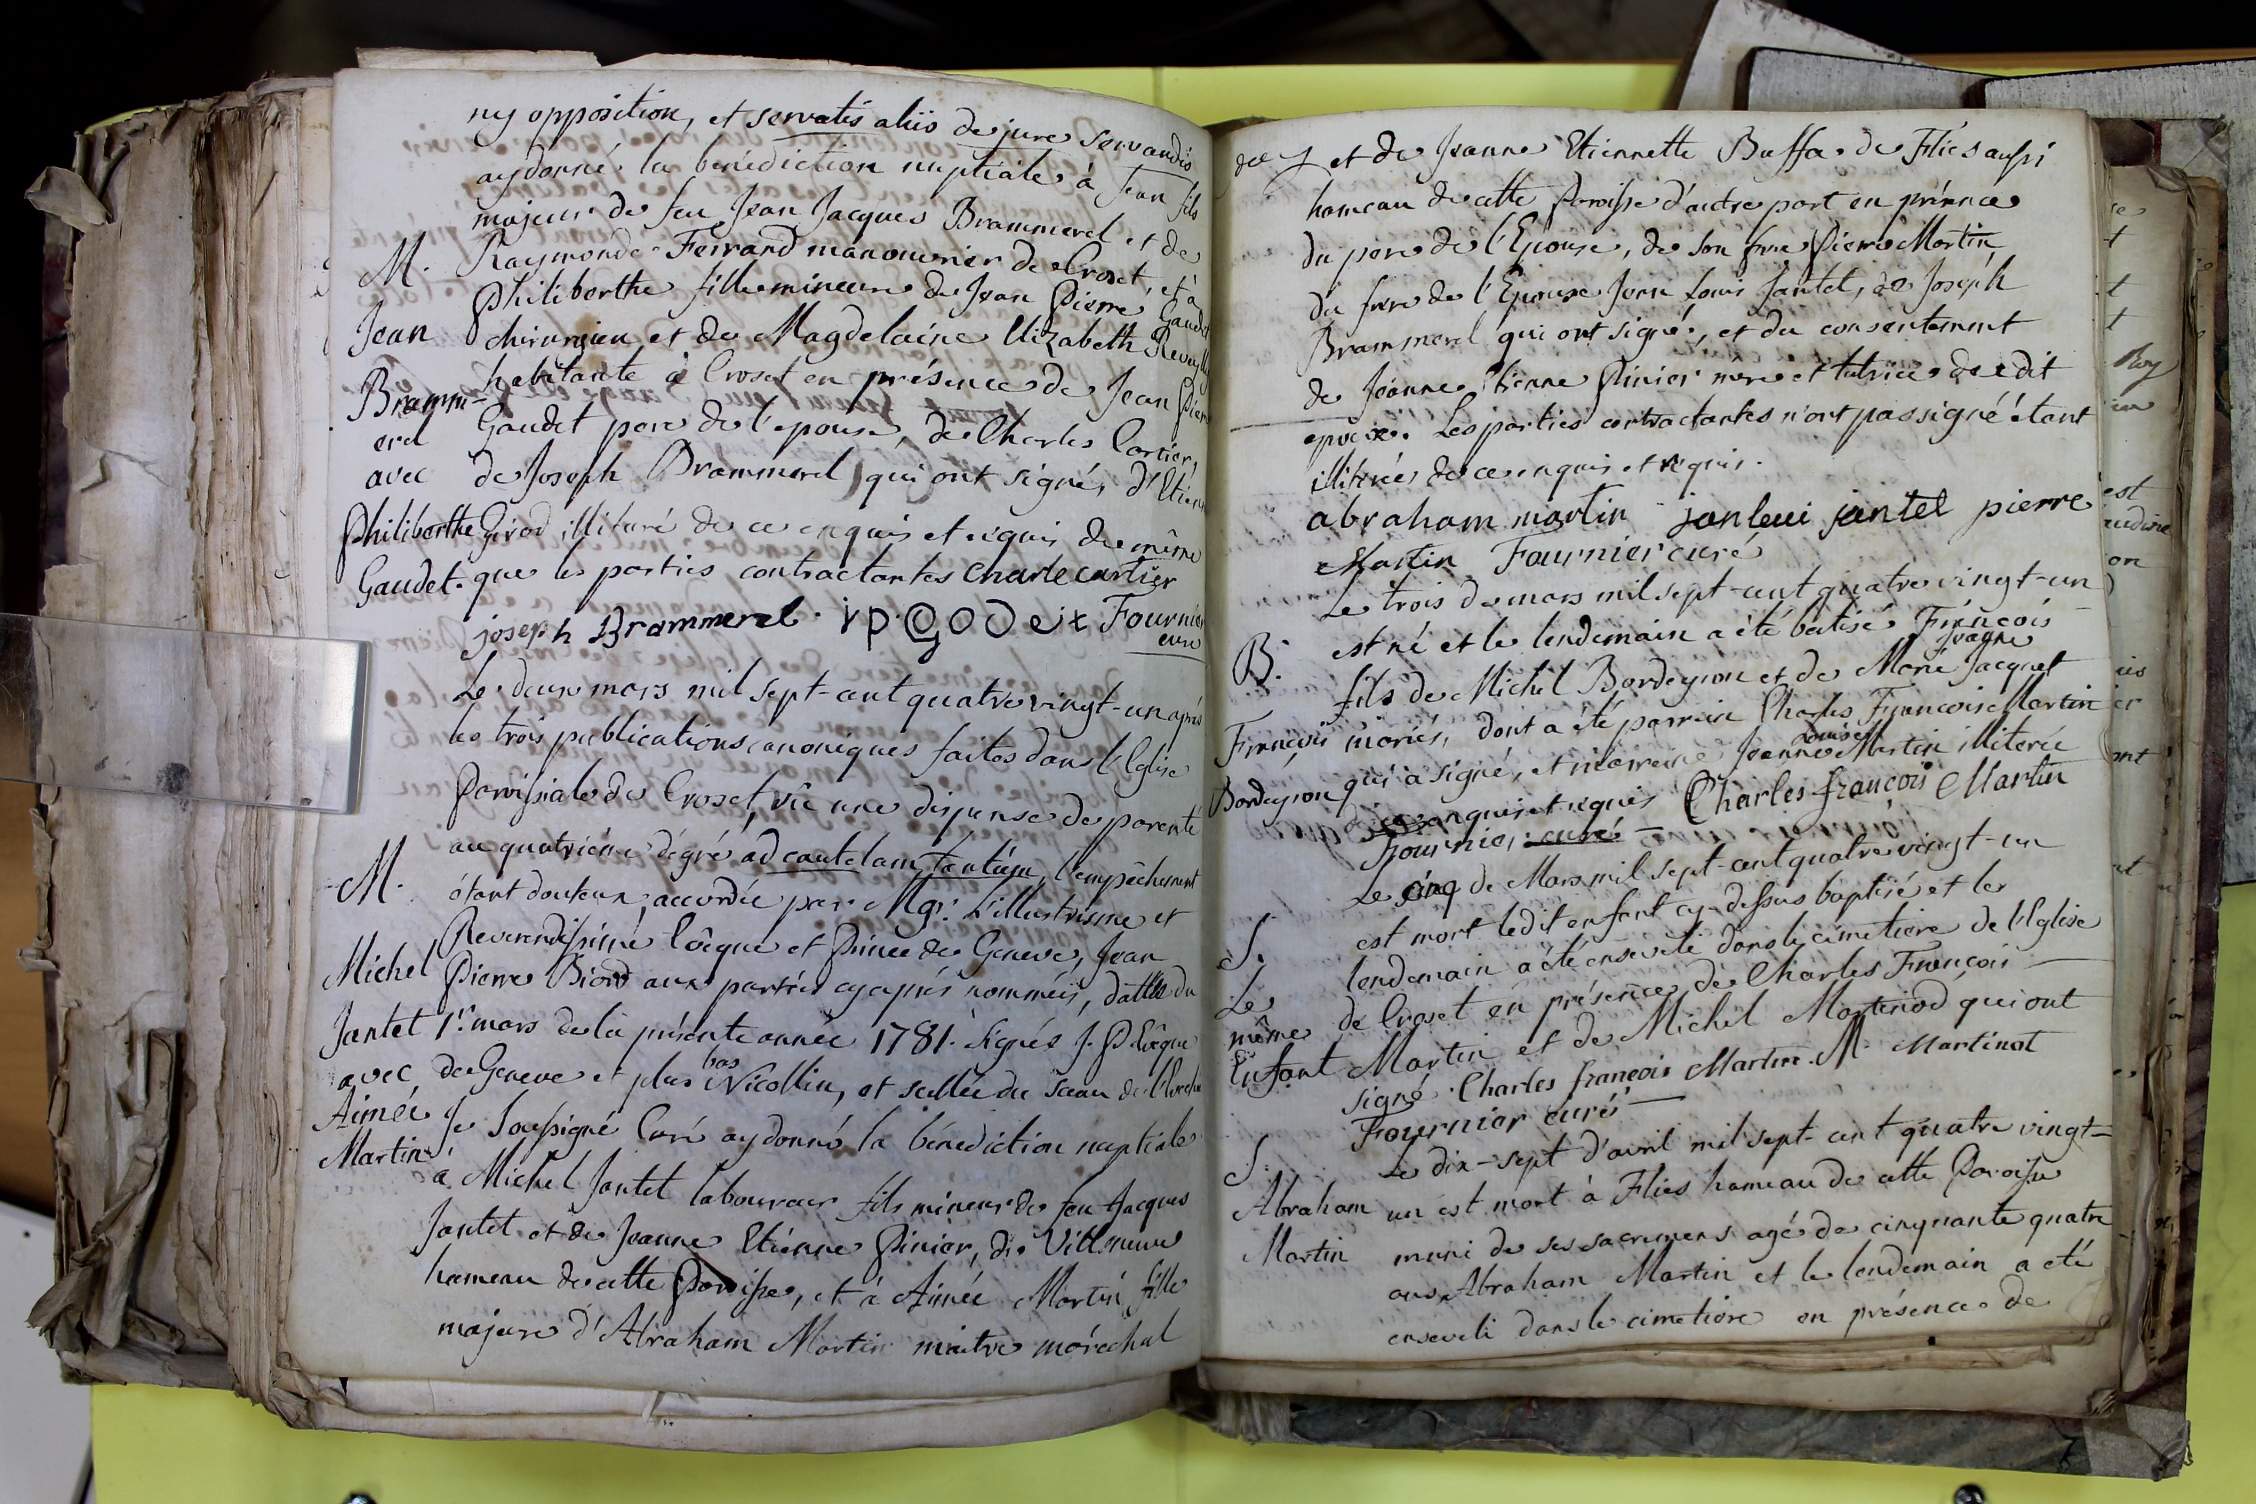 ny opposition, et servatis aliis de jure servandis
ay donné la bénédiction nuptiale à Jean fils
majeur de feu Jean Jacques Brammerel et de
M. Raymonde Ferrand manouvrier de Croset, et à
Philiberthe fille mineure de Jean Pierre Gaudet
Jean chirurgien et de Magdelaine Elizabeth
habitante à Croset en présence de Jean Pierre
Bramm-
erel Gaudet pere de l'epouse, de Charles Cartier,
avec de Joseph Brammerel qui ont signé, d'Etienne
Philiberthe Girod illituré de ce enquis et requis de même
Gaudet. que les parties contractantes Charle cartier
joseph Brammerel. i p. GODet Fournier
curé
Le deux mars mil sept-cent quatre vingt-un après
les trois publications canoniques faites dans l'Eglise
Paroissiale de Croset, vû une dispense de parenté
au quatrième dégré ad cautelam tantùm, l'empêchement
M. étant douteux, accordée par Mgr. L'illustrisime et
Reverendissime Evêque et Prince de Geneve, Jean
Michel Pierre Biord aux parties cy après nommées, dattée du
Jantet 1er. mars de la présente année 1781. Signés J. P. Evêque
avec de Geneve et plus bas Nicollin, et scellée du sceau de l'Eveché
Aimée Je Soussigné Curé ay donné la bénediction nuptiale
Martin. à Michel Jantet laboureur fils mineur de feu Jacques
Jantet et de Jeanne Etienne Pinier, de Villeneuve
hameau de cette Paroisse, et à Aimée Martin fille
majeure d'Abraham Martin maitre maréchal
et de Jeanne Etiennette Buffa de Flies aussi
hameau de cette Paroisse d'autre part en présence
du pere de l'Epouse, de son frere Pierre Martin,
du frere de l'Epouse Jean Louis Jantet, de Joseph
Brammerel qui ont signé, et du consentement
de Jeanne Etienne Pinier mere et tutrice dudit
epoux. Les parties contractantes n'ont pas signé étant
illiterées de ce enquis et requis.
abraham martin janleui jantel pierre
Martin Fournier curé
Le trois de mars mil sept-cent quatre vingt-un
B. est né et le lendemain a été batisé François
fils de Michel Bardeyron et de Marie Jacquet
François mariés, dont a été parrain Charles Francois Martin
Louise
Bardeyron qui a signé, et marreine Jeanne Martin illiterée
enquis et requis Charles françois Martin
Fournier curé
Le cinq de Mars mil sept-cent quatre vingt-un
est mort ledit enfant cy-dessus baptisé et le
S. lendemain a été enseveli dans le cimetiere de l'Eglise
Le de Croset en présence de Charles François
même
Enfant Martin et de Michel Martinod qui ont
signé. Charles françois Martin. M. Martinat
Fournier curé
S. Le dix-sept d'avril mil sept-cent quatre vingt-
Abraham un est mort à Flies hameau de cette Paroisse
Martin muni de ses sacremens agé de cinquante quatre
ans Abraham Martin et le lendemain a été
enseveli dans le cimetiere en présence de